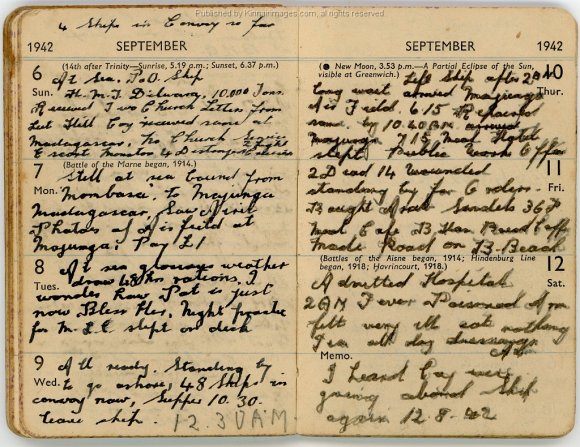 Published by Kinnainimages.com, All rights reserved.
4 Ships in Convoy so far
1942 SEPTEMBER
6
Sun.
(14th after Trinity—Sunrise, 5.19 a.m.; Sunset, 6.37 p.m.)
At Sea. P.O. Ship
H.M.T. Dilwara, 10,000 Tons
Received Two Church Letters from
Last Coy received same at
Madagascar, No Church Service
Escort Monitor &
7
Mon.
(Battle of the Marne began, 1914.)
Still at sea bound from
Mombasa to Majunga
Madagascar, Saw Airial
Photos of Airfield at
Majunga. Pay £1
8
Tues.
At sea weather
draw 48 Hrs rations, I
wonder how Pat is just
now Bless Her, Night practice
for slept on deck
9
Wed.
All ready. Standing by
to go ashore, 48 Ships in
convoy now, Supper 10.30.
leave ship. 12.30 AM
SEPTEMBER 1942
10
Thur.
(● New Moon, 3.53 p.m.—A Partial Eclipse of the Sun, visible at Greenwich.)
Left Ship after 2
Long wait arrived Majunga
Air Field. 6.15
same by 10.40 AM
Majunga 7.15 Hotel
slept. Public Work Office
11
Fri.
2 Dead 14 Wounded
standing by for Orders.
Bought Sandels
Cafe
made Road on B. Beach
12
Sat.
(Battles of the Aisne began, 1914; Hindenburg Line began, 1918; Havrincourt, 1918.)
Admitted Hospital
2 AM Fever Poisoned Arm
felt very ill eat nothing
all day
Memo.
I heard Coy were
going aboard Ship
again 12.8.42